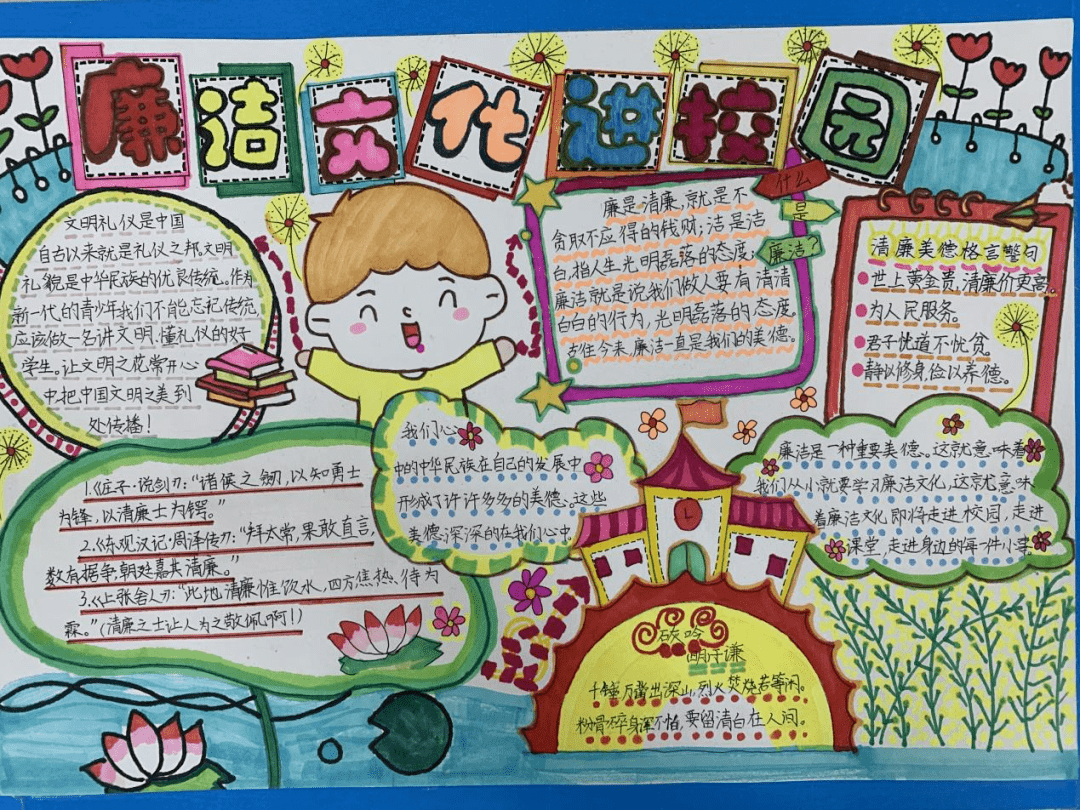 廉洁文化进校园
文明礼仪是中国
自古以来就是礼仪之邦.文明
礼貌是中华民族的优良传统.作为
新一代的青少年我们不能忘记传统
应该做一名讲文明.懂礼仪的好
学生。让文明之花常开心
中.把中国文明之美到
处传播!
什么
是
廉洁?
廉是清廉,就是不
贪取不应得的钱财;洁是洁
白,指人生光明磊落的态度;
廉洁就是说我们做人要有清清
白白的行为,光明磊落的态度。
古往今来,廉洁一直是我们的美德。
清廉美德格言警句
世上黄金贵,清廉价更高。
为人民服务。
君子忧道不忧贫。
静以修身俭以养德。
1.《庄子·说剑》:“诸侯之剑,以知勇士
为锋,以清廉士为锷。”
2.《东观汉记·周泽传》:“拜太常,果敢直言,
数有据争,朝廷嘉其清廉。”
3.《上张舍人》:“此地清廉惟饮水,四方焦热待为
霖。”(清廉之士让人为之敬佩啊!)
我们心
中的中华民族在自己的发展中
形成了许许多多的美德、这些
美德深深的在我们心中
廉洁是一种重要美德。这就意味着
我们从小就要学习廉洁文化,这就意味
着廉洁文化即将走进校园,走进
课堂,走进身边的每一件小事
L
吟
于谦
千锤万凿出深山,烈火焚烧若等闲。
粉骨碎身浑不怕,要留清白在人间。